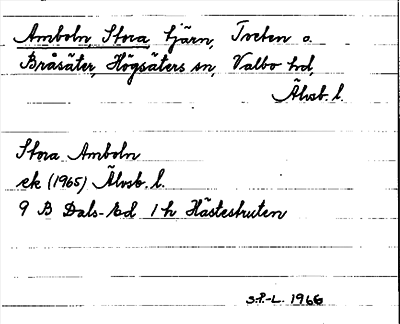 Amboln, Stora, tjärn, Tveten o.
Bråsäter, Högsäters sn, Valbo hd,
Älvsb. l.
Stora Amboln
ek (1965) Älvsb. l.
9 B Dals-Ed 1 h Hästeskuten
S.P.-L. 1966